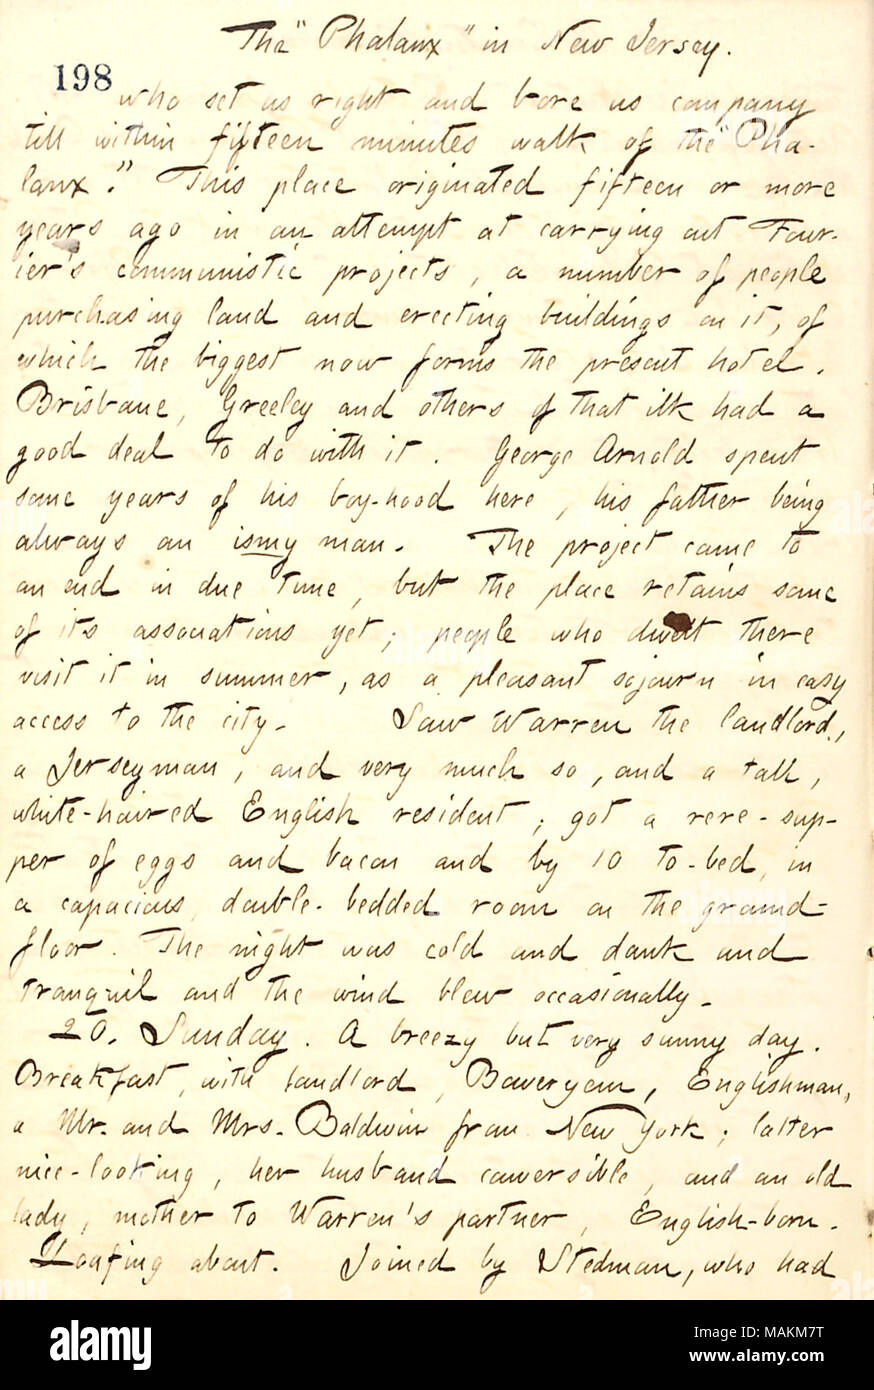 The "Phalanx" in New Jersey.
198
who set us right and bore us company
till within fifteen minutes walk of the "Pha-
lanx." This place originated fifteen or more
years ago in an attempt at carrying out Four-
ier's communistic projects, a number of people
purchasing land and erecting buildings on it, of
which the biggest now forms the present hotel.
Brisbane, Greeley and others of that ilk had a
good deal to do with it. George Arnold spent
some years of his boy-hood here, his father being
always an ismy man. The project came to
an end in due time, but the place retains some
of its associations yet; people who dwelt there
visit it in summer, as a pleasant sojourn in easy
access to the city. Saw Warren the landlord,
a Jerseyman, and very much so, and a tall,
white-haired English resident; got a rere-sup-
per of eggs and bacon and by 10 to-bed, in
a capacious, double-bedded room on the ground-
floor. The night was cold and dank and
tranquil and the wind blew occasionally.
20. Sunday. A breezy but very sunny day.
Breakfast, with landlord, Boweryem, Englishman,
a Mr. and Mrs. Baldwin from New York; latter
nice-looking, her husband conversible, and an old
lady, mother to Warren's partner, English-born.
Loafing about. Joined by Stedman, who had
alamy
Image ID: MAKM7T
www.alamy.com